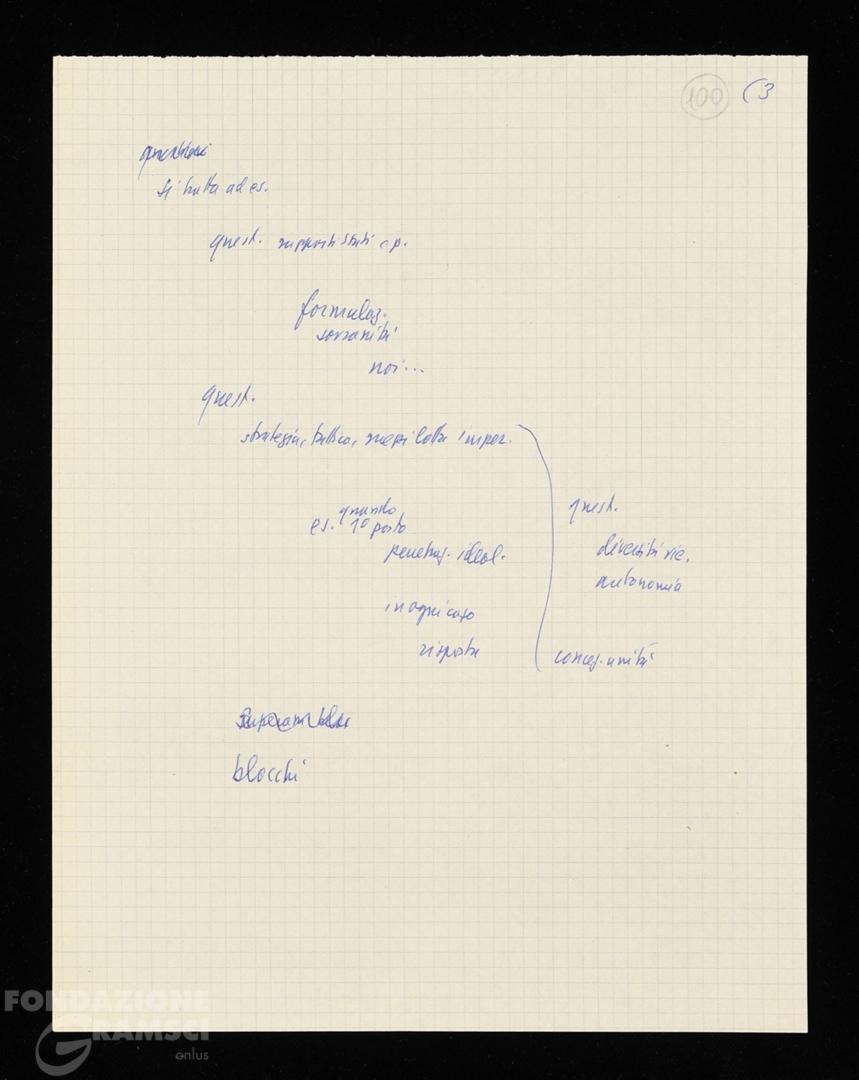 100 (3
questioni
si tratta ad es.
quest. rapporti stati e p.
formulaz.
sovranità
noi...
quest.
strategia, tattica, mezzi lotta imper.
quando
es. 1° posto
penetraz. ideol.
in ogni caso
risposta
quest.
diversità vie,
autonomia
concez. unità
blocchi
FONDAZIONE
GRAMSCI
onlus